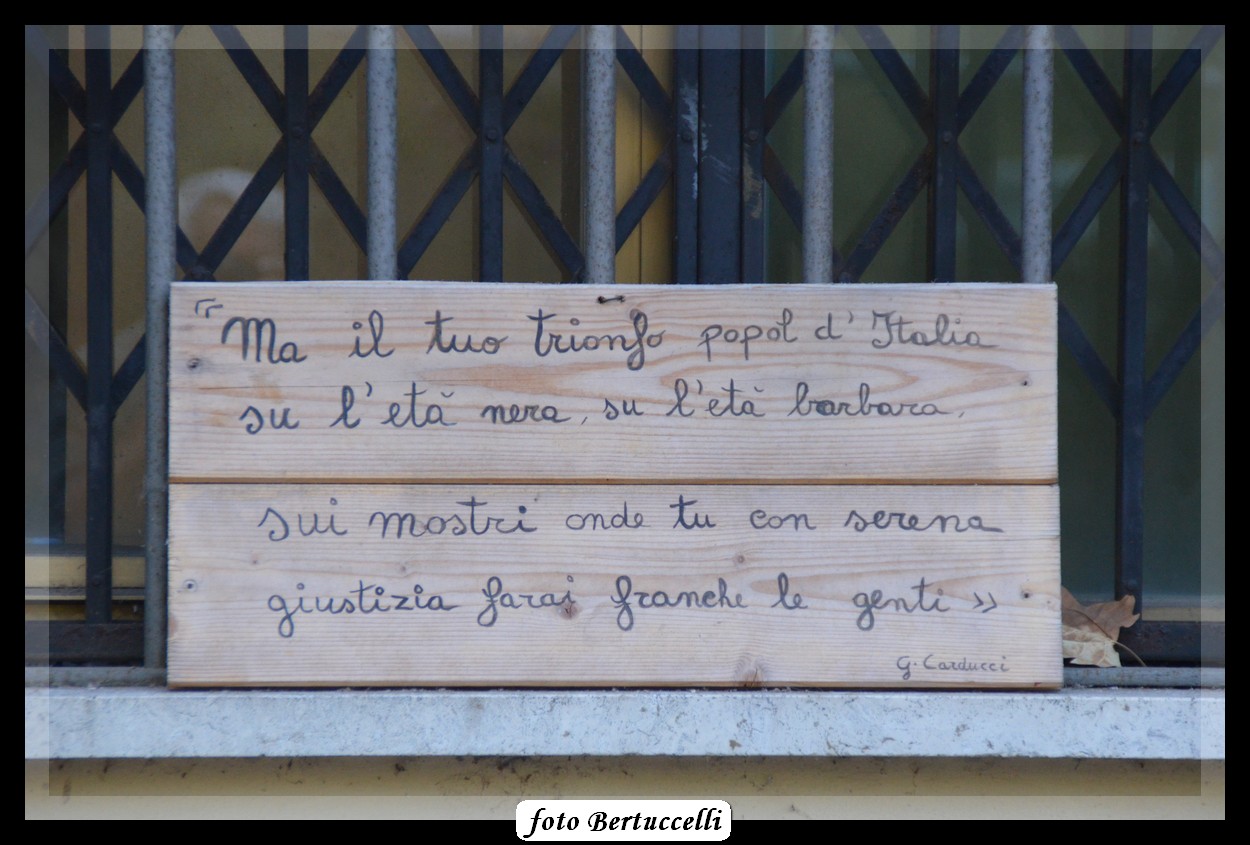 “Ma il tuo trionfo popol d'Italia
su l'età nera, su l'età barbara,
sui mostri onde tu con serena
giustizia farai franche le genti »
G. Carducci
foto Bertuccelli